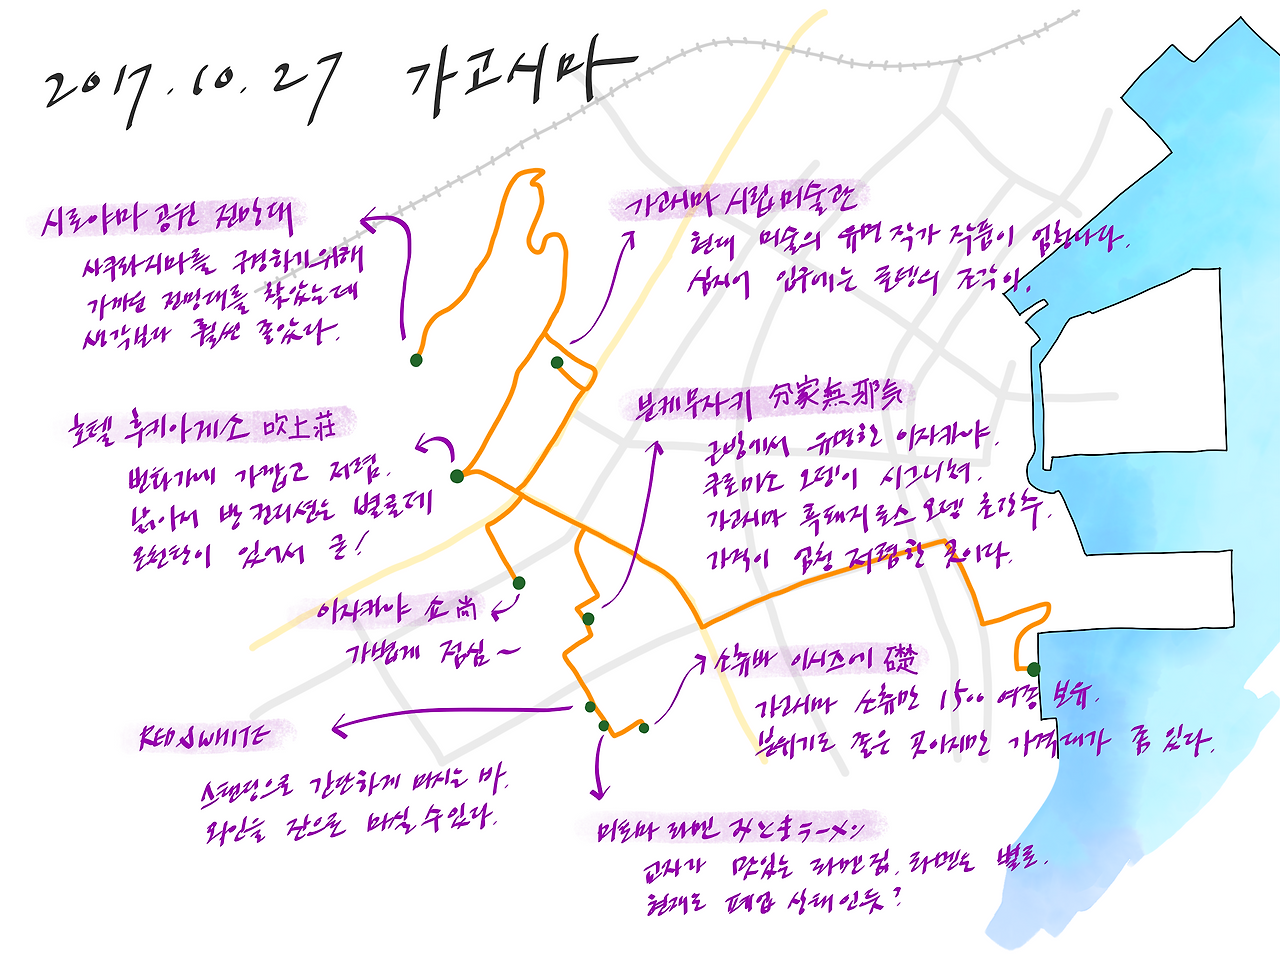 2017.10.27 가고시마
시로야마 공원 전망대
사쿠라지마를 구경하기 위해
가까운 전망대를 찾았는데
생각보다 훨씬 좋았다.
가고시마 시립미술관
현대 미술의 유명 작가 작품이 엄청나다.
심지어 입구에는 로댕의 조각이.
호텔 후키아게소 吹上荘
번화가에 가깝고 저렴.
낡아서 방 컨디션은 별론데
온천탕이 있어서 굳!
분케무자키 分家無邪気
근방에서 유명한 이자카야.
쿠로미소 오뎅이 시그니쳐.
가고시마 흑돼지 로스 오뎅 훈강추.
가격이 엄청 저렴한 곳이다.
이자카야 쇼 尚
가볍게 점심~
소츄바 이시즈에 礎
가고시마 소츄만 1500 여종 보유.
분위기도 좋은 곳이지만 가격대가 좀 있다.
RED & WHITE
스탠딩으로 간단하게 마시는 바.
와인을 잔으로 마실 수 있다.
미토마 라멘 みとまラーメン
교자가 맛있는 라멘집. 라멘는 별로.
현재는 폐업 상태인듯?